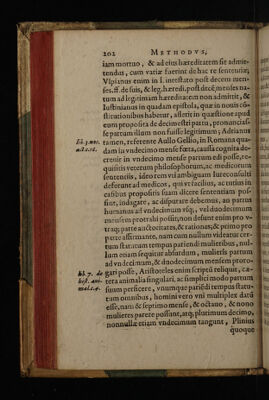 202 METHODVS,
iam mortuo, & ad eius hæreditatem sit admit-
tendus, cum variæ fuerint de hac re sententiæ,
Vlpianus enim in l. intestato post decem men-
ses. ff. de suis, & leg. hæredi. post decē menses na-
tum ad legitimam hæreditatem non admittit, &
Iustinianus in quadam epistola, quæ in nouis cō-
stitutionibus habetur, asserit in quæstione apud
eum proposita de decimestri partu, pronunciass-
se partum illum non fuisse legitimum; Adrianus
Li. 3. noc.
act. c. 16.
tamen, referente Aullo Gellio, in Romana qua-
dam in vndecimo mense fœta, causa cognita de-
creuit in vndecimo mense partum edi posse, re-
quisitis veterum philosophorum, ac medicorum
sententiis, ideo rem vti ambiguam Iureconsulti
deferunt ad medicos, qui vt facilius, ac tutius in
casibus propositis suam dicere sententiam pos-
sint, indagate, ac disputare debemus, an partus
humanus ad vndecimum vsq;, vel duodecimum
mensem protrahi possit, non desunt enim pro v-
traq; parte auctoritates, & rationes; & primo pro
parte affirmante, nam cum nullum videatur cer-
tum statutum tempus pariendi mulieribus, nul-
lum etiam sequitur absurdum, mulieris partum
ad vndecimum, & duodecimum mensem proro-
li. 7. de
hist. ani-
mal. c. 4.
gari posse, Aristoteles enim scriptū reliquit, cæ-
tera animalia singulari, ac simplici modo partum
suum perficere, vnumque pariēdi tempus statu-
tum omnibus, homini vero vni multiplex datū
esse, nam & septimo mense, & octauo, & nono
mulieres parere possunt, atq; plutimum decimo,
nonnullæ etiam vndecimum tangunt, Plinius
quoque